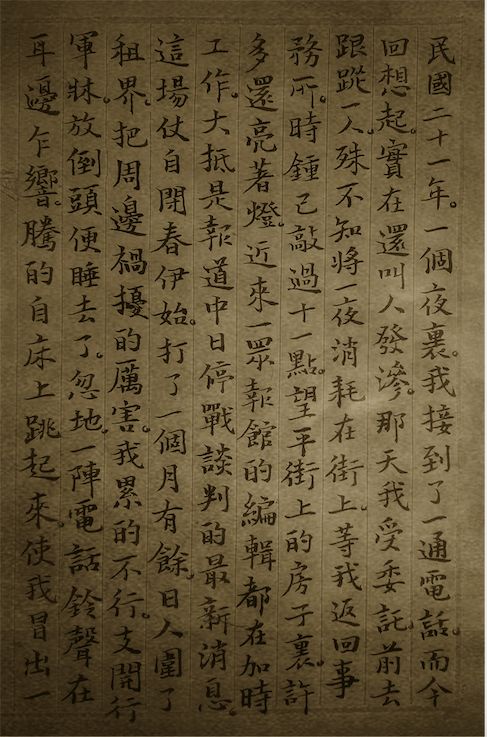 民國二十一年。一個夜裏。我接到了一通電話。而今
回想起。實在還叫人發滲。那天我受委託。前去
跟蹤一人。殊不知將一夜消耗在街上。等我返回事
務所。時鍾已敲過十一點。望平街上的房子裏。許
多還亮著燈。近來一眾報館的編輯都在加時
工作。大抵是報道中日停戰談判的最新消息。
這場仗自開春伊始。打了一個月有餘。日人圍了
租界。把周邊禍擾的厲害。我累的不行。支開行
軍牀。放倒頭便睡去了。忽地。一陣電話鈴聲在
耳邊乍響。騰的自床上跳起來。使我冒出一